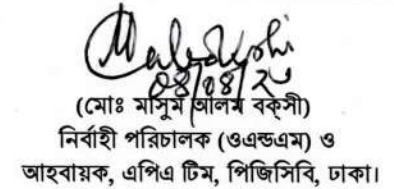 ০৪/০৪/২৩
(মোঃ মাসুম আলম বক্‌সী)
নির্বাহী পরিচালক (ওএন্ডএম) ও
আহবায়ক, এপিএ টিম, পিজিসিবি, ঢাকা।